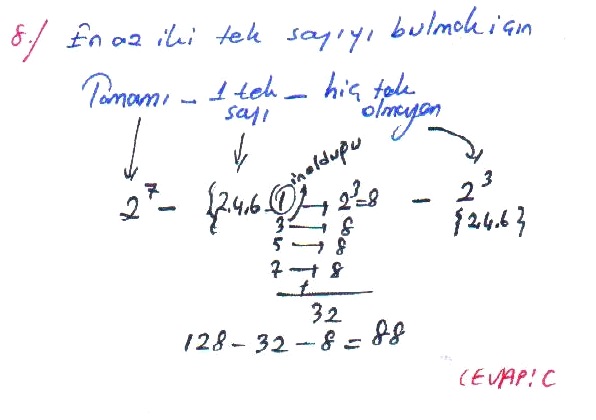 8./ En az iki tek sayıyı bulmak için
Tamamı - 1 tek sayı - hiç tek olmayan
2⁷ - {2,4,6,1} → 2³=8 - 2³
in olduğu
3 → 8 {2,4,6}
5 → 8
7 → 8
+
32
128 - 32 - 8 = 88
CEVAP: C